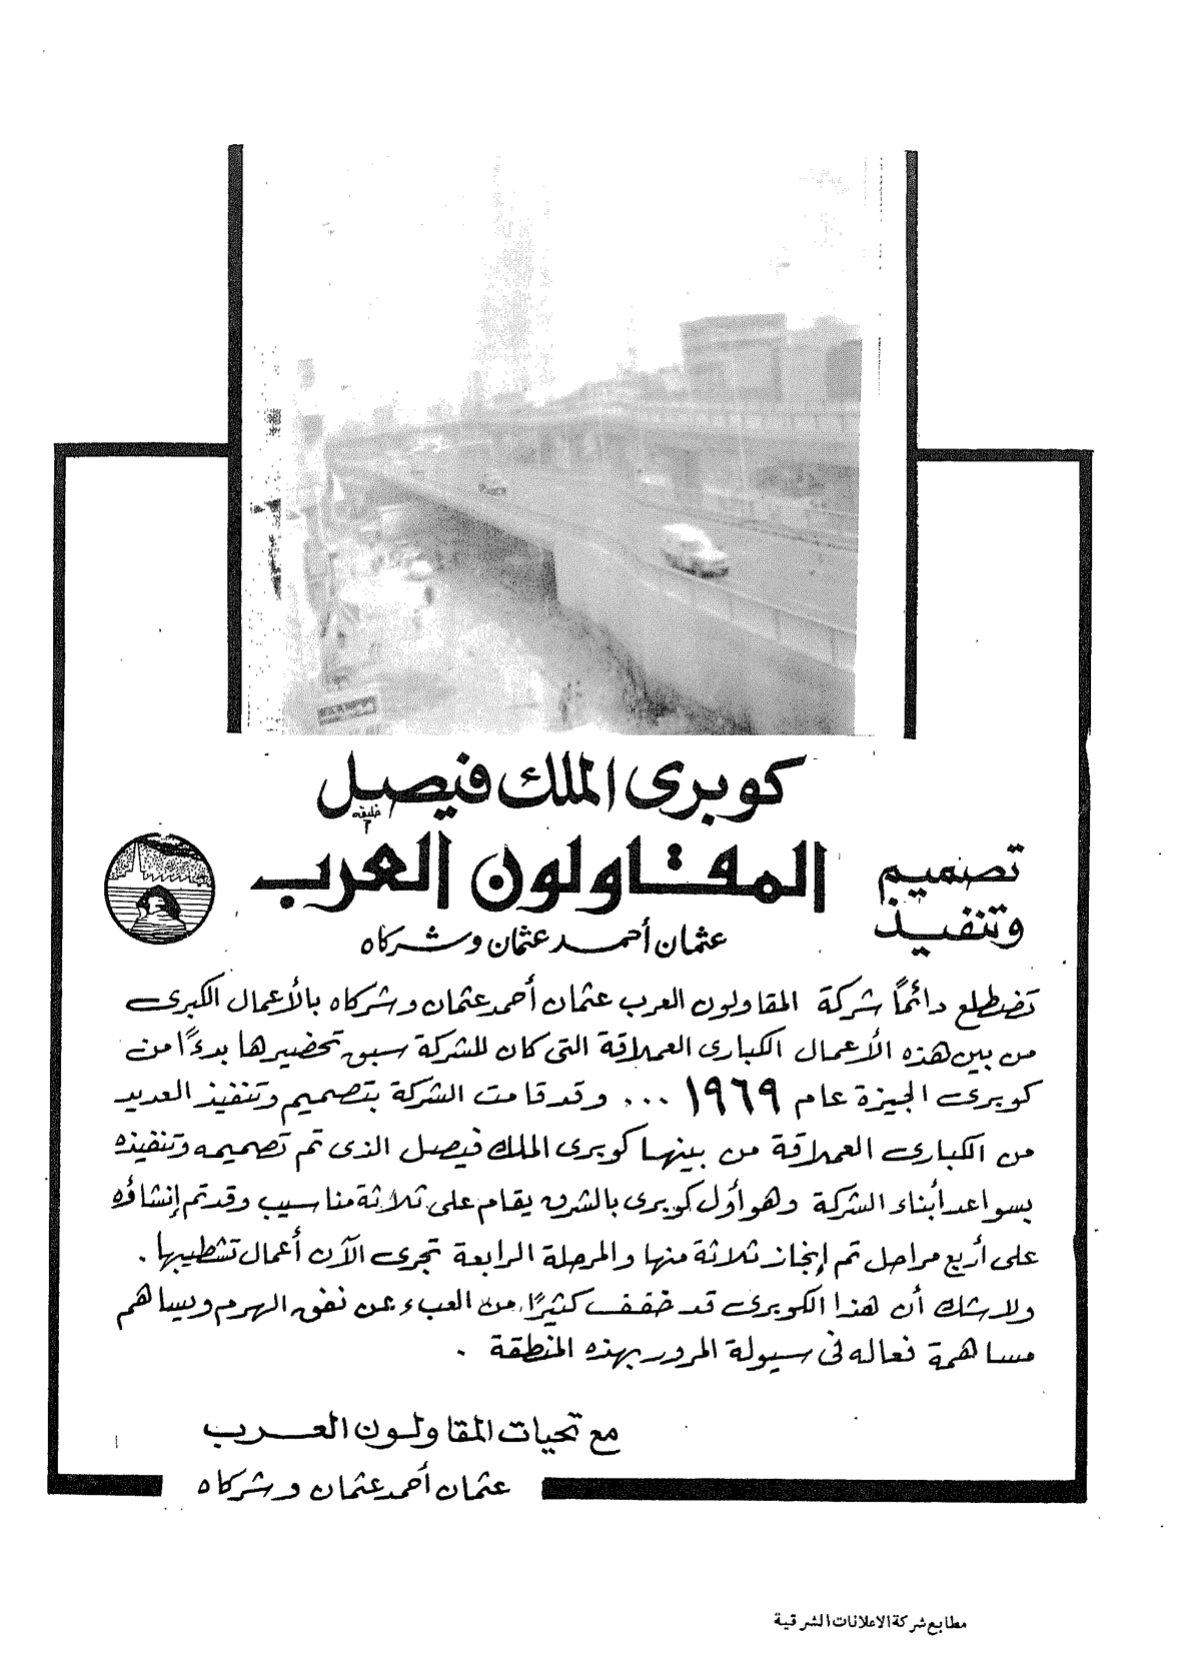 كوبرى الملك فيصل
خليفه
تصميم وتنفيذ
المقاولون العرب
عثمان أحمد عثمان وشركاه
تضطلع دائماً شركة المقاولون العرب عثمان أحمد عثمان وشركاه بالأعمال الكبرى
من بين هذه الأعمال الكبارى العملاقة التى كان للشركة سبق تحضيرها بدءًا من
كوبرى الجيزة عام ١٩٦٩ ... وقد قامت الشركة بتصميم وتنفيذ العديد
من الكبارى العملاقة من بينها كوبرى الملك فيصل الذى تم تصميمه وتنفيذه
بسواعد أبناء الشركة وهو أول كوبرى بالشرق يقام على ثلاثة مناسيب وقد تم إنشاؤه
على أربع مراحل تم إنجاز ثلاثة منها والمرحلة الرابعة تجرى الآن أعمال تشطيبها .
ولا شك أن هذا الكوبرى قد خفف كثيرًا من العبء عن نفق الهرم ويساهم
مساهمة فعاله فى سيولة المرور بهذه المنطقة .
مع تحيات المقاولون العرب
عثمان أحمد عثمان وشركاه
مطابع شركة الاعلانات الشرقية